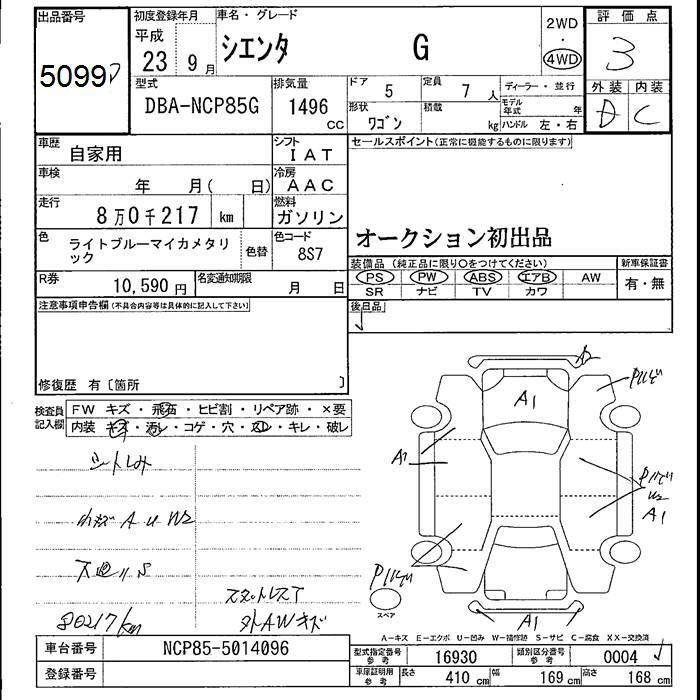 出品番号 初度登録年月 車名・グレード 2WD 評価点
平成 ・ 3
5099 23年 9月 シエンタ G 4WD
型式 排気量 ドア 5 定員 7人 ディーラー・並行 外装 内装
DBA-NCP85G 1496cc 形状 ワゴン 積載 kg モデル年式 年 D C
ハンドル 左・右
車歴 自家用 シフト IAT セールスポイント(正常に機能するものに限ります)
車検 年 月( 日) 冷房 AAC
走行 8万0千217 km 燃料 ガソリン
オークション初出品
色 ライトブルーマイカメタリック 色替 色コード 8S7
装備品(純正品に限り○をつけてください) 新車保証書
R券 10,590円 名変通知期限 月 日 PS PW ABS エアB AW 有・無
SR ナビ TV カワ
注意事項申告欄(不具合内容等は具体的に記入して下さい) 後日品
修復歴 有〔箇所 〕
検査員記入欄 FW キズ・飛石・ヒビ割・リペア跡・×要
内装 キズ・汚レ・コゲ・穴・スレ・キレ・破レ
シートしみ
A U W2
80217km
スタットレスT
外AWキズ
A2
A1
A1
W2
A1
A1
スペア
A-キズ E-エクボ U-凹み W-補修跡 S-サビ C-腐食 XX-交換済
車台番号 NCP85-5014096 型式指定番号参考 16930 類別区分番号参考 0004
登録番号 車庫証明用参考 長さ 410cm 幅 169cm 高さ 168cm